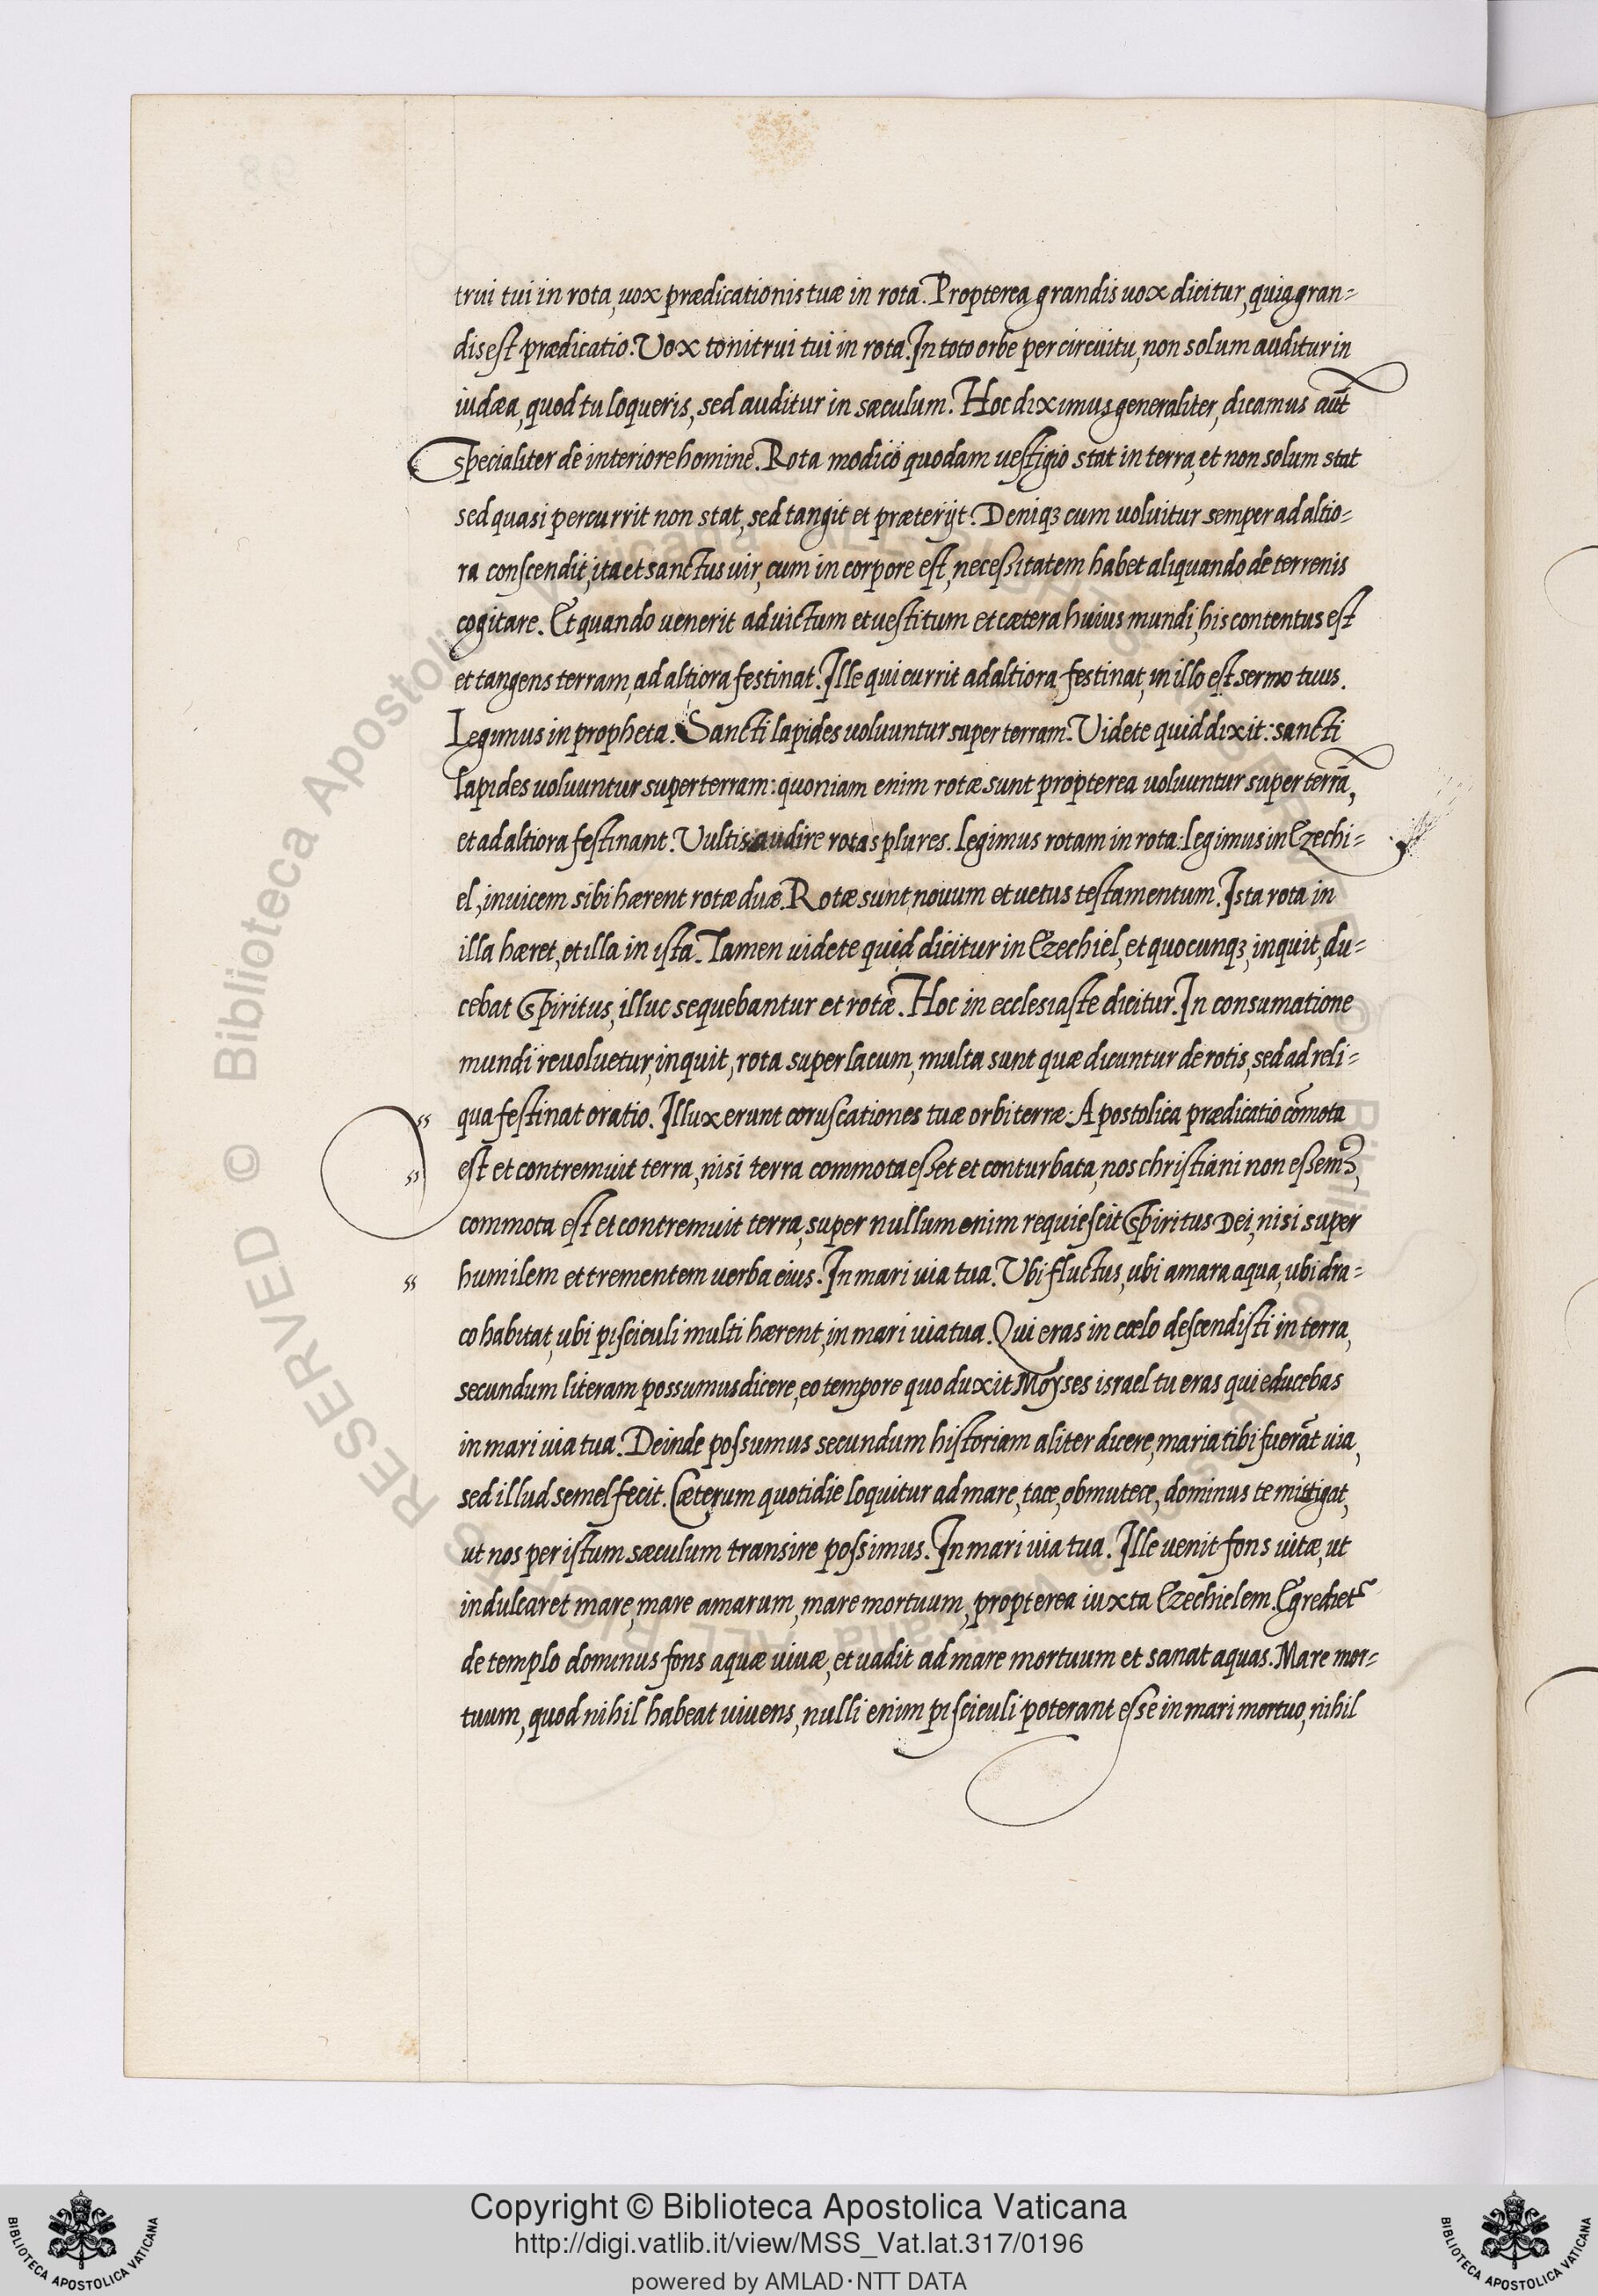 trui tui in rota, uox prædicationis tuæ in rota. Propterea grandis uox dicitur, quia gran=
dis est prædicatio. Vox tonitrui tui in rota. In toto orbe per circuitu, non solum auditur in
iudæa, quod tu loqueris, sed auditur in sæculum. Hoc diximus generaliter, dicamus aūt
specialiter de interiore homine. Rota modico quodam uestigio stat in terra, et non solum stat
sed quasi percurrit non stat, sed tangit et præterijt. Deniqꝫ cum uoluitur semper ad altio=
ra conscendit, ita et sanctus uir, cum in corpore est, necessitatem habet aliquando de terrenis
cogitare. Et quando uenerit ad uictum et uestitum et cætera huius mundi, his contentus est
et tangens terram, ad altiora festinat. Ille qui currit ad altiora festinat, in illo est sermo tuus.
Legimus in propheta. Sancti lapides uoluuntur super terram. Videte quid dixit: sancti
lapides uoluuntur super terram: quoniam enim rotæ sunt propterea uoluuntur super terrā,
et ad altiora festinant. Vultis audire rotas plures. Legimus rotam in rota. Legimus in Ezechi=
el, inuicem sibi hærent rotæ duæ. Rotæ sunt nouum et uetus testamentum. Ista rota in
illa hæret, et illa in ista. Tamen uidete quid dicitur in Ezechiel, et quocunqꝫ, inquit, du=
cebat Spiritus, illuc sequebantur et rotæ. Hoc in ecclesiaste dicitur. In consumatione
mundi reuoluetur, inquit, rota super lacum, multa sunt quæ dicuntur de rotis, sed ad reli=
qua festinat oratio. Illuxerunt coruscationes tuæ orbi terræ: Apostolica prædicatio cōmota
est et contremuit terra, nisi terra commota esset et conturbata, nos christiani non essemꝰ,
commota est et contremuit terra, super nullum enim requiescit Spiritus Dei, nisi super
humilem et trementem uerba eius. In mari uia tua. Vbi fluctus, ubi amara aqua, ubi dra=
co habitat, ubi pisciculi multi hærent, in mari uia tua. Qui eras in cœlo descendisti in terra,
secundum literam possumus dicere, eo tempore quo duxit Moyses israel tu eras qui educebas
in mari uia tua. Deinde possumus secundum historiam aliter dicere, maria tibi fuerāt uia,
sed illud semel fecit. Cæterum quotidie loquitur ad mare, tace, obmutece, dominus te mittigat,
ut nos per istum sæculum transire possimus. In mari uia tua. Ille uenit fons uitæ, ut
indulcaret mare, mare amarum, mare mortuum, propterea iuxta Ezechielem. Egredietᷣ
de templo dominus fons aquæ uiuæ, et uadit ad mare mortuum et sanat aquas. Mare mor=
tuum, quod nihil habeat uiuens, nulli enim pisciculi poterant esse in mari mortuo, nihil
Copyright © Biblioteca Apostolica Vaticana
http://digi.vatlib.it/view/MSS_Vat.lat.317/0196
powered by AMLAD·NTT DATA
BIBLIOTECA APOSTOLICA VATICANA
BIBLIOTECA APOSTOLICA VATICANA